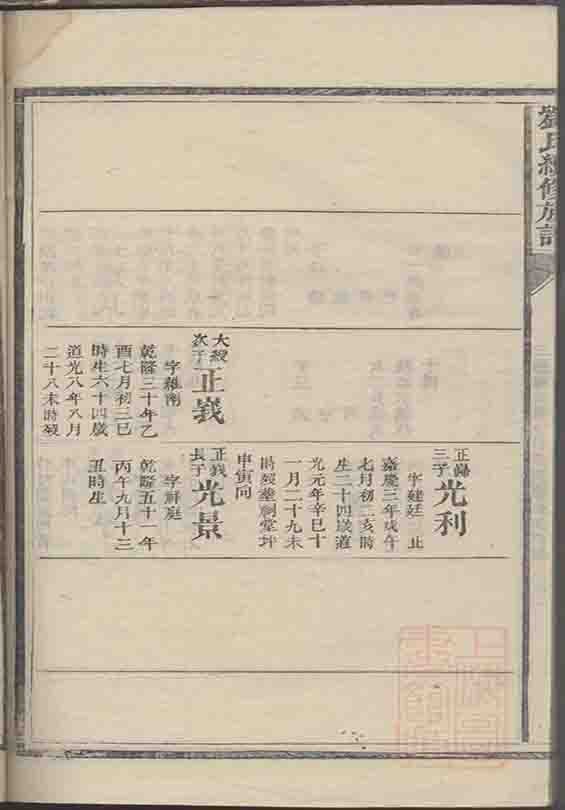 劉氏續修族譜
大綬
次子
正義
字雜南
乾隆三十年乙
酉七月初三巳
時生六十四歲
道光八年八月
二十八未時歿
正歸
三子
光利
字建廷 止
嘉慶三年戊午
七月初二亥時
生二十四歲道
光元年辛巳十
一月二十九未
時歿葬祠堂坪
申寅向
正義
長子
光景
字 庭
乾隆五十一年
丙午九月十三
丑時生
上海圖
書館藏